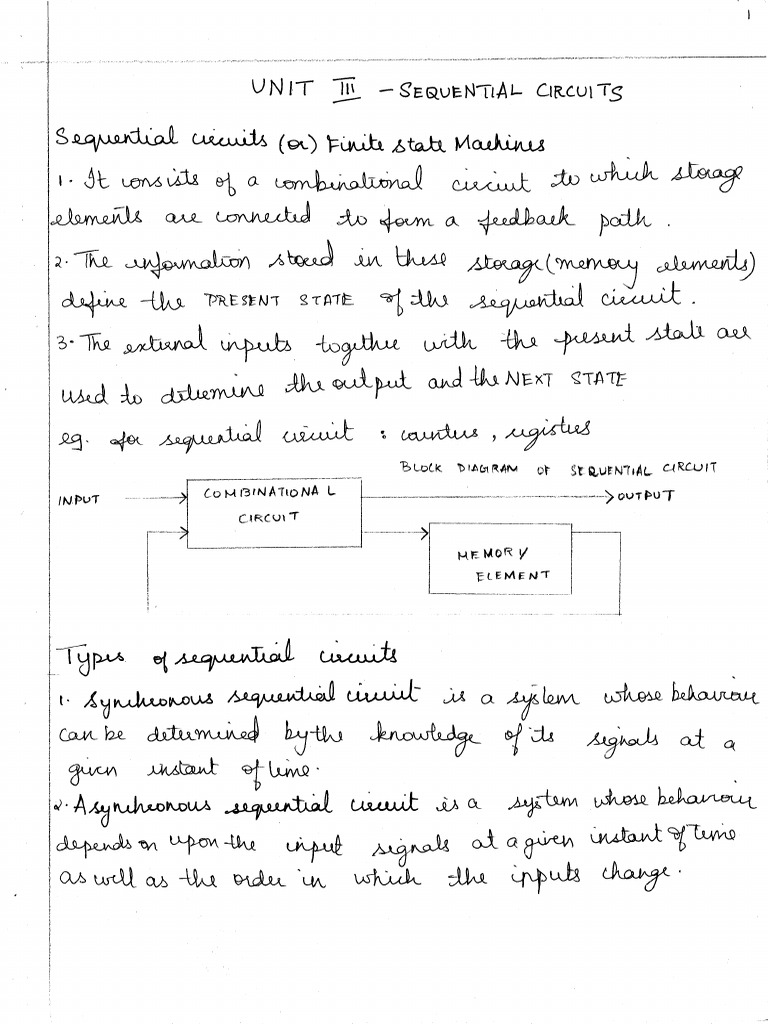 1
UNIT III - SEQUENTIAL CIRCUITS
Sequential circuits (or) Finite state Machines
1. It consists of a combinational circuit to which storage
elements are connected to form a feedback path.
2. The information stored in these storage (memory elements)
define the PRESENT STATE of the sequential circuit.
3. The external inputs together with the present state are
used to determine the output and the NEXT STATE
eg. for sequential circuit : counters, registers
BLOCK DIAGRAM OF SEQUENTIAL CIRCUIT
INPUT
COMBINATIONAL
CIRCUIT
OUTPUT
MEMORY
ELEMENT
Types of sequential circuits
1. Synchronous sequential circuit is a system whose behaviour
can be determined by the knowledge of its signals at a
given instant of time.
2. Asynchronous sequential circuit is a system whose behaviour
depends on upon the input signals at a given instant of time
as well as the order in which the inputs change.